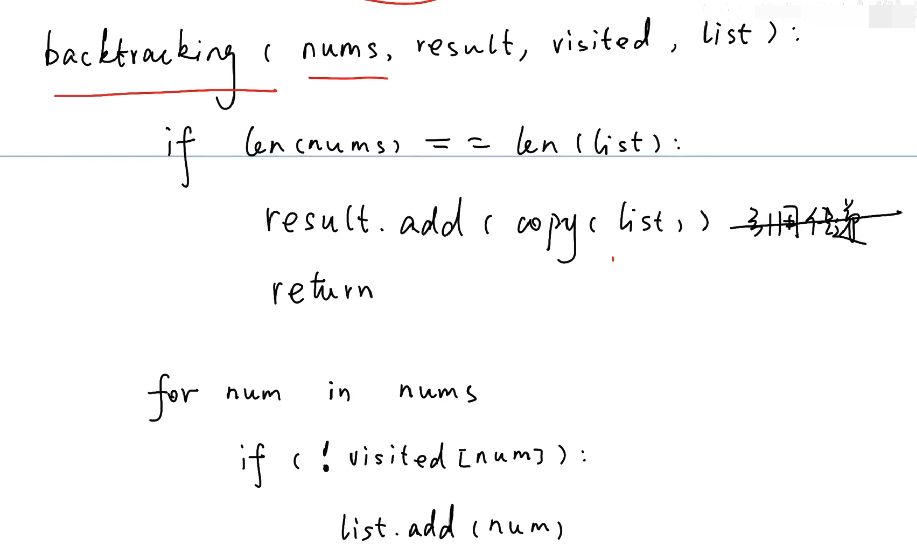 backtracking ( nums, result, visited, list ) :
if len(nums) == len (list) :
result. add ( copy ( list, ) )
return
for num in nums
if ( ! visited [num] ) :
list. add (num)